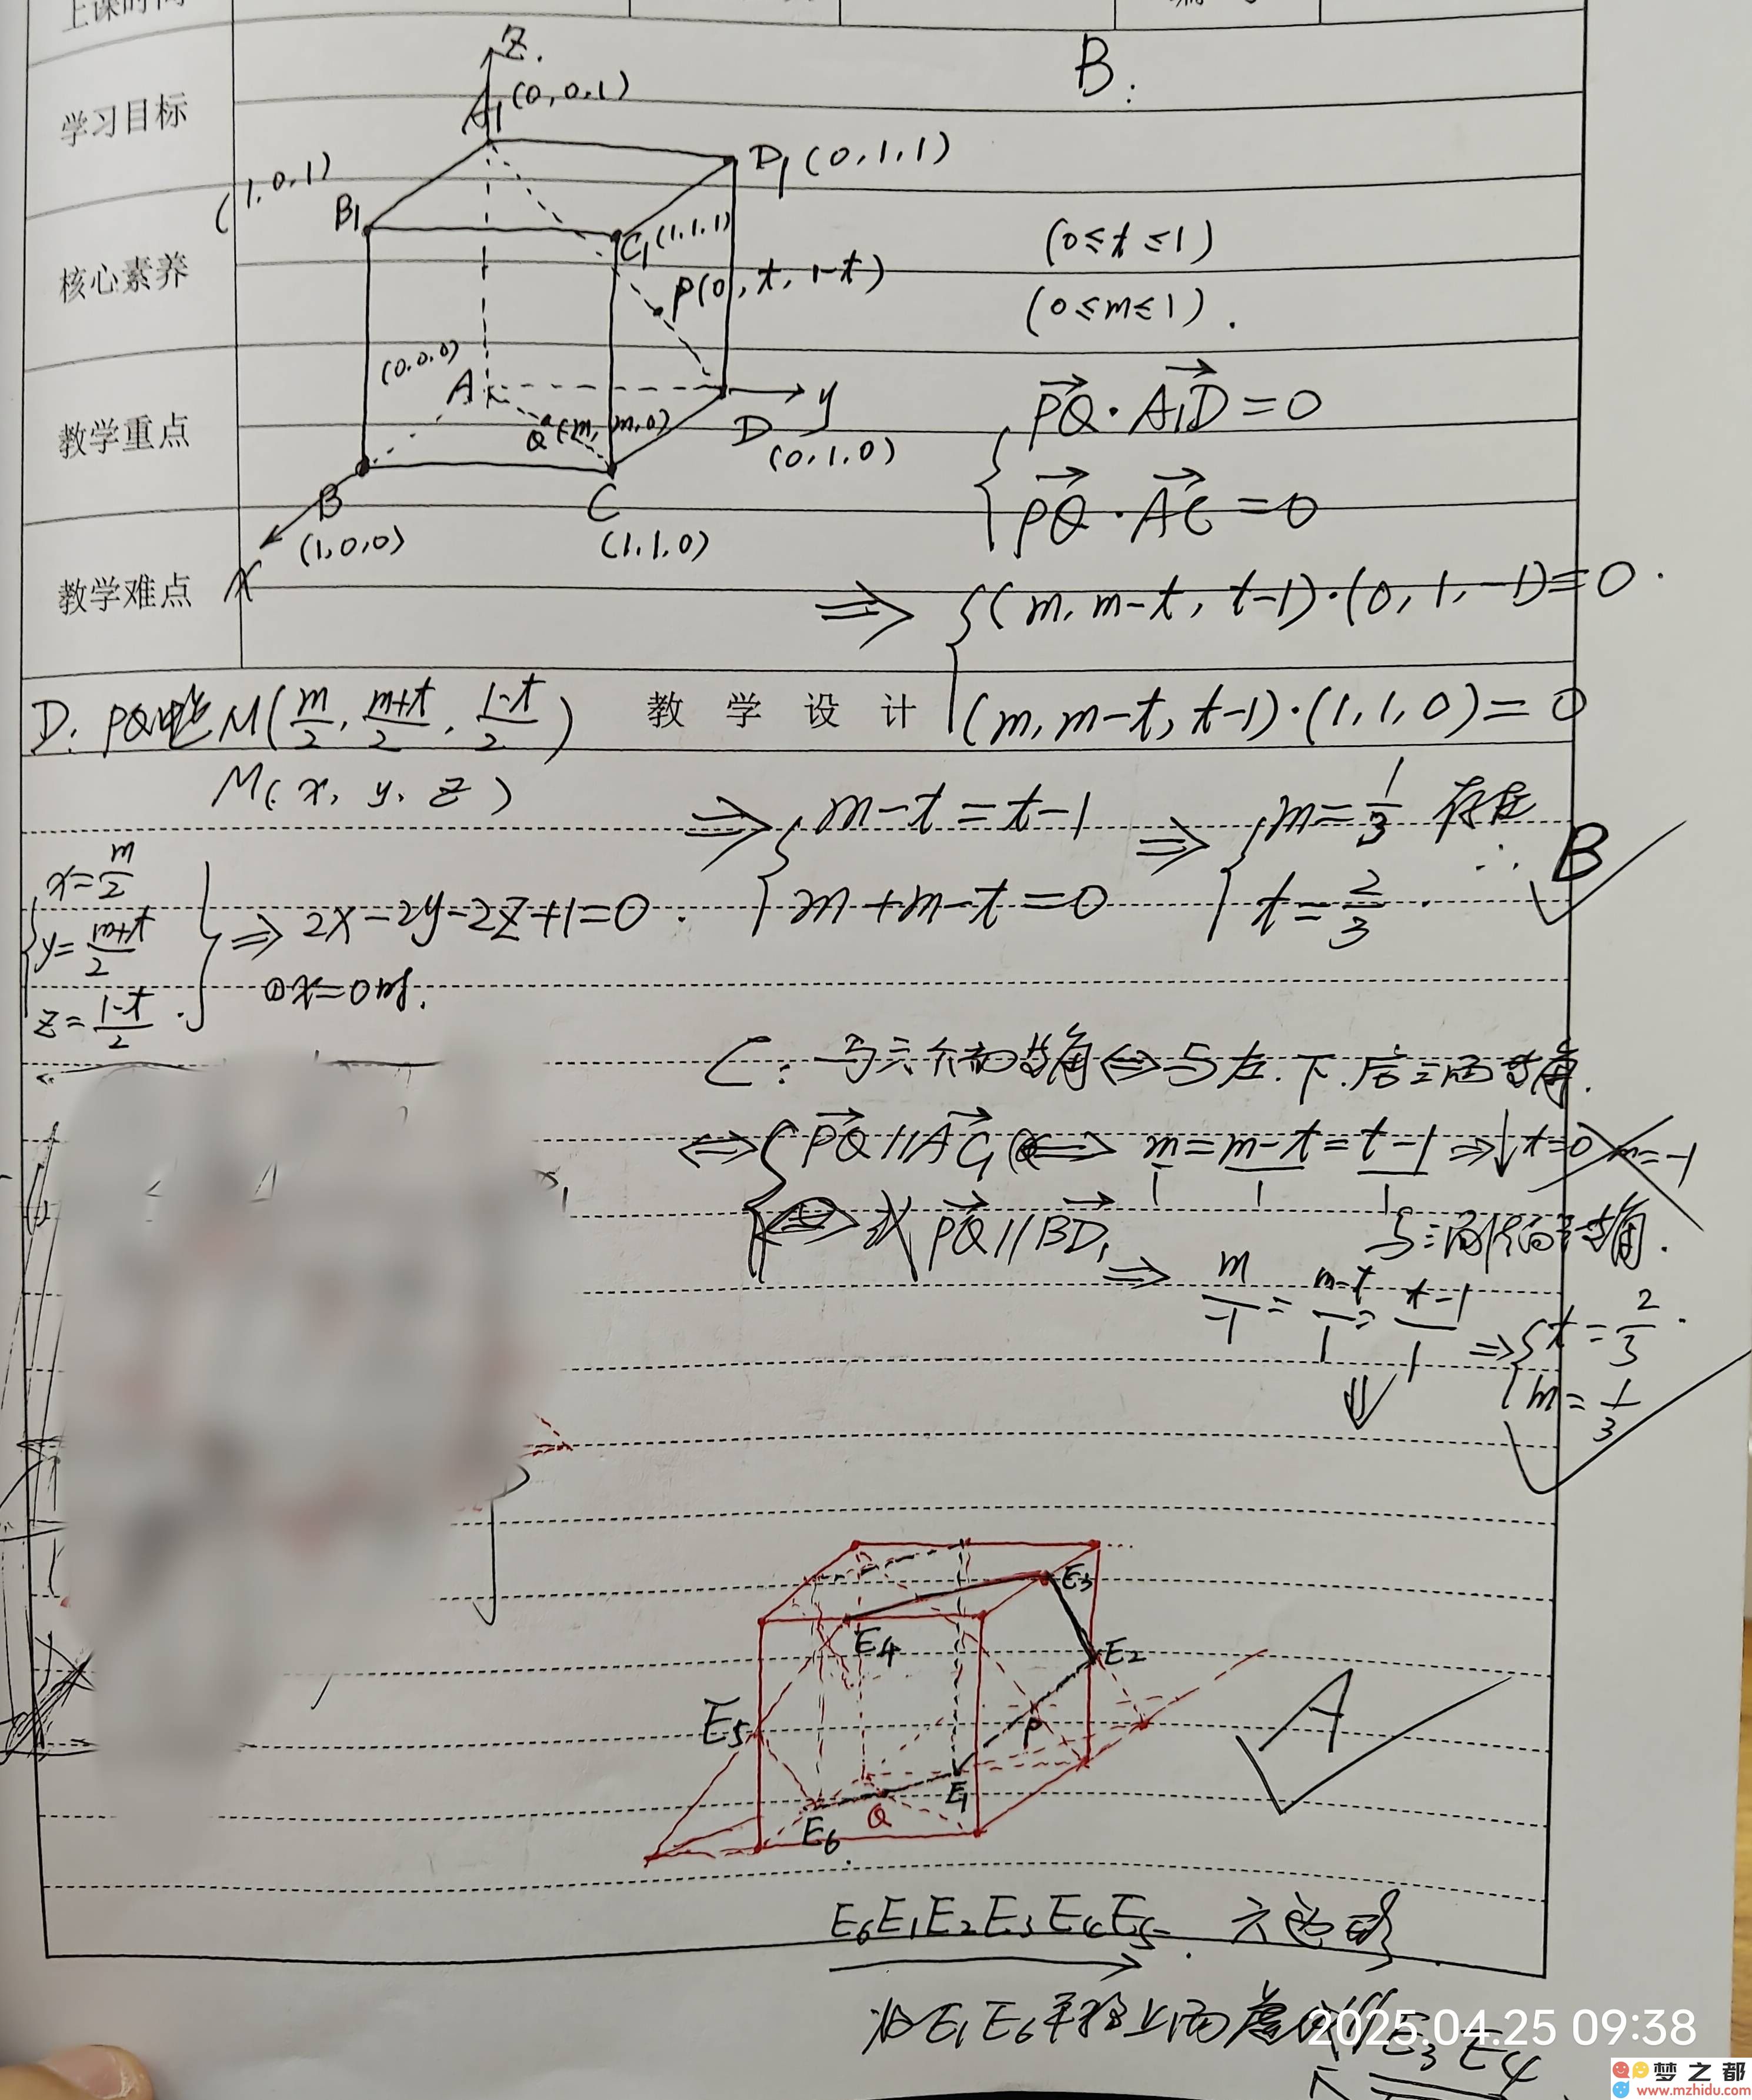 上课时间
学习目标
核心素养
教学重点
教学难点
Z.
A₁(0,0,1)
D₁(0,1,1)
(1,0,1)
B₁
C₁(1,1,1)
P(0,t,1-t)
(0,0,0)
A
Q(m,m,0)
y
D
(0,1,0)
B
(1,0,0)
C
(1,1,0)
X
B:
(0≤t≤1)
(0≤m≤1).
PQ·A₁D=0
PQ·AC=0
⇒ {(m,m-t,t-1)·(0,1,-1)=0.
(m,m-t,t-1)·(1,1,0)=0
D: PQ中点M(m/2,(m+t)/2,(1-t)/2)
教 学 设 计
M(x,y,z)
⇒ {m-t=t-1
m+m-t=0
⇒ {m=1/3 存在
t=2/3.
∴B
{x=m/2
y=(m+t)/2
z=(1-t)/2.} ⇒ 2x-2y-2z+1=0.
①x=0时.
C: 与六个面等角⇔与左.下.后三面等角.
⇔ {PQ∥AC₁ ⇔ m/1=(m-t)/1=(t-1)/1 ⇒ t=0 m=-1
或PQ∥BD₁
⇒ m/-1=(m-t)/1=(t-1)/1 ⇒ {t=2/3.
m=1/3
⇓
E₃
E₄
E₂
E₅
P
E₁
Q
E₆
A
E₆E₁E₂E₃E₄E₅. 六边形
将E₁E₆平移上面
E₃E₄
2025.04.25 09:38
梦之都
www.mzhidu.com